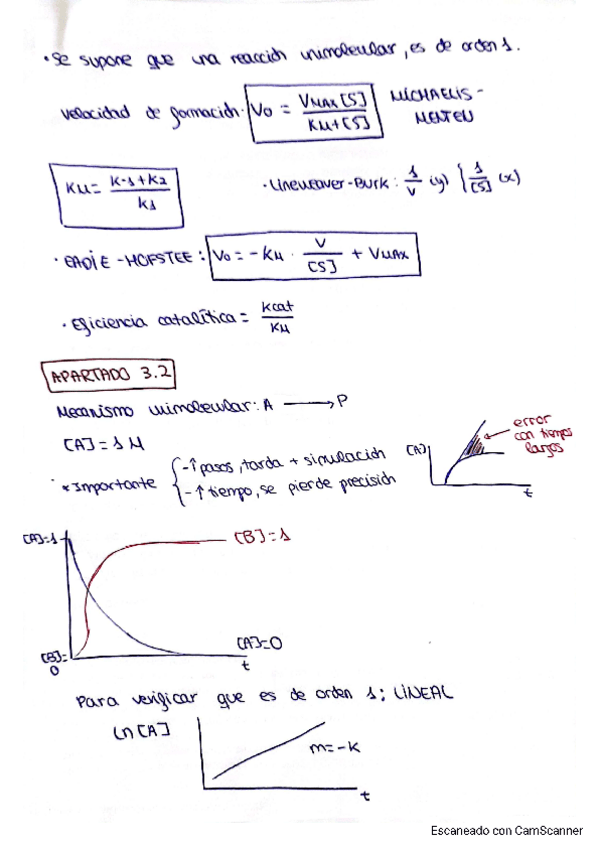 ·Se supone que una reacción unimolecular, es de orden 1.
velocidad de formación: Vo = VMAX[S] / KM+[S] MICHAELIS-MENTEN
KM = K-1+K2 / K1 ·Lineweaver-Burk: 1/V (y) { 1/[S] (x)
·EADIE-HOFSTEE: Vo = -KM · V/[S] + VMAX
·Eficiencia catalítica = Kcat/KM
APARTADO 3.2
Mecanismo unimolecular: A ⟶ P
[A]=1M
*Importante { -↑pasos, tarda + simulación
-↑tiempo, se pierde precisión
[A]
t
error
con tiempos
largos
[A]=1
[B]=1
[B]=0
[A]=0
t
Para verificar que es de orden 1: LINEAL
Ln[A]
m=-K
t
Escaneado con CamScanner